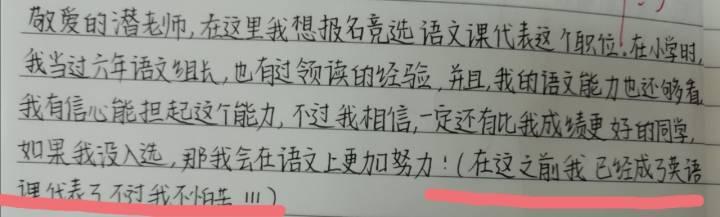 敬爱的潜老师,在这里我想报名竞选语文课代表这个职位.在小学时,
我当过六年语文组长,也有过领读的经验,并且,我的语文能力也还够看,
我有信心能担起这个能力,不过我相信,一定还有比我成绩更好的同学,
如果我没入选,那我会在语文上更加努力!(在这之前我已经成了英语
课代表了不过我不怕苦!!!)